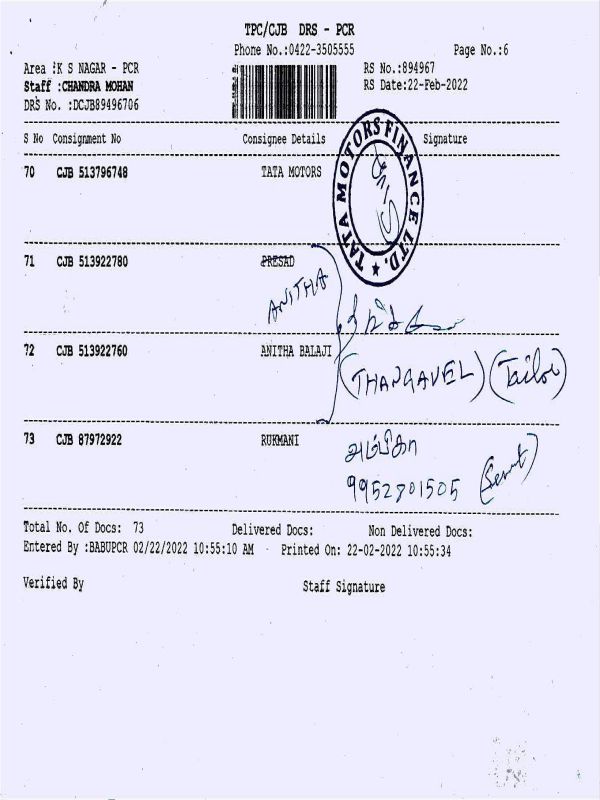 TPC/CJB DRS - PCR
Phone No.:0422-3505555
Page No.:6
Area :K S NAGAR - PCR
RS No.:894967
Staff :CHANDRA MOHAN
RS Date:22-Feb-2022
DRS No. :DCJB89496706
S No Consignment No Consignee Details Signature
70 CJB 513796748 TATA MOTORS
TATA MOTORS FINANCE LTD.
71 CJB 513922780 PRESAD
ANITHA
72 CJB 513922760 ANITHA BALAJI
(THANGAVEL) (Tailor)
73 CJB 87972922 RUKMANI
அம்பிகா
9952801505
Total No. Of Docs: 73 Delivered Docs: Non Delivered Docs:
Entered By :BABUPCR 02/22/2022 10:55:10 AM Printed On: 22-02-2022 10:55:34
Verified By Staff Signature